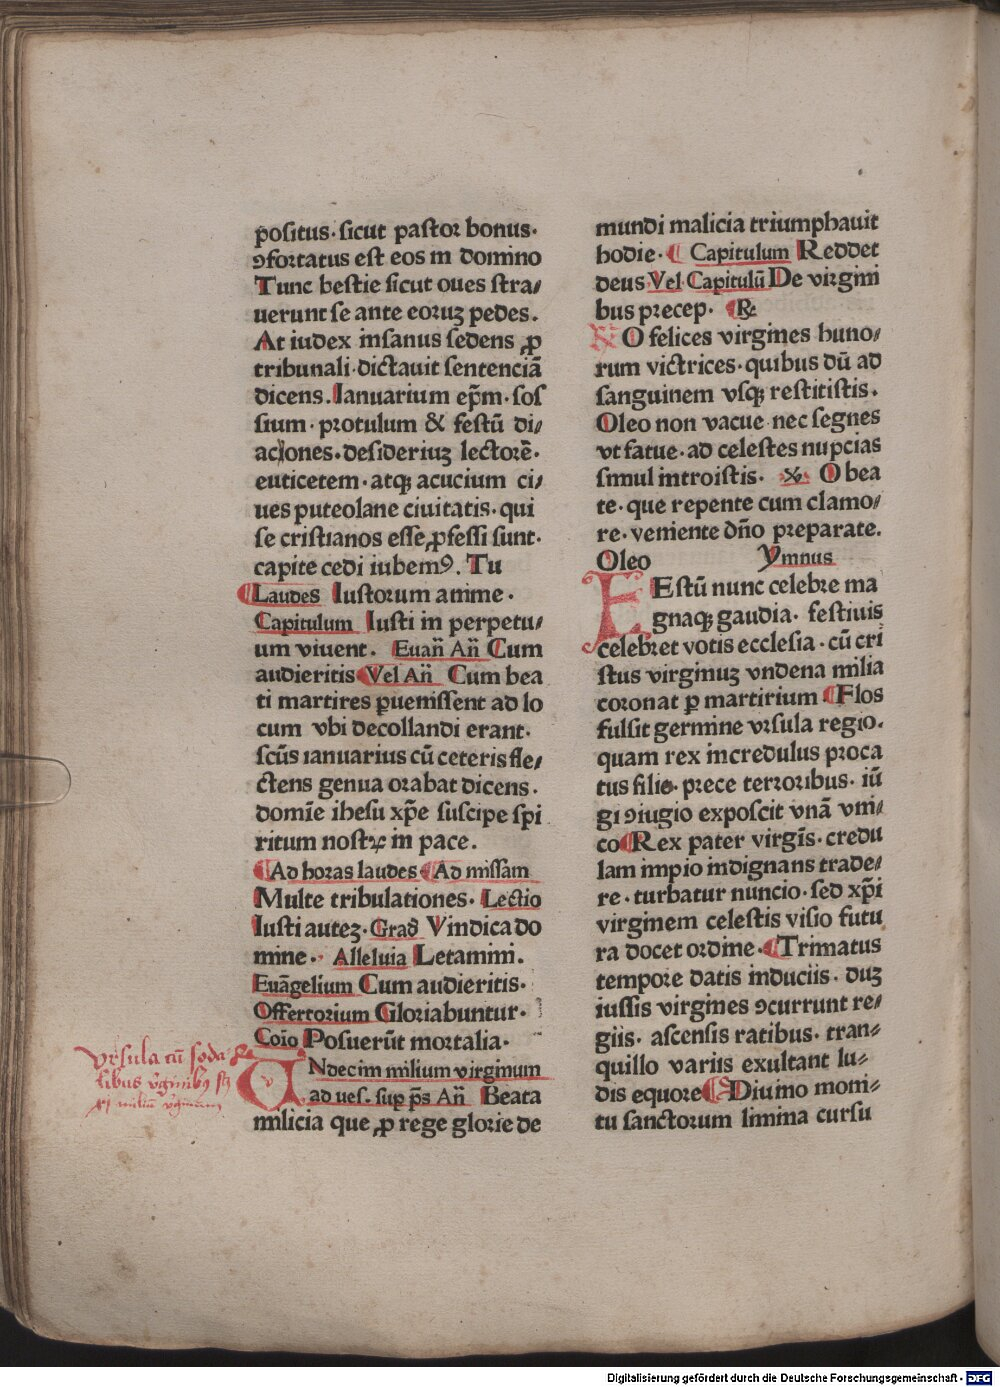 positus· sicut pastor bonus·
ꝯfortatus est eos in domino
Tunc bestie sicut oues stra⸗
uerunt se ante eoruꝫ pedes.
At iudex insanus sedens ꝓ
tribunali· dictauit sentenciā
dicens. Ianuarium ep̄m· sos
sium· protulum & festū di⸗
aciones· desideriuꝫ lectorē·
euticetem· atqꝫ acucium ci⸗
ues puteolane ciuitatis· qui
se cristianos esse ꝓfessi sunt·
capite cedi iubemꝰ. Tu
Laudes Iustorum anime·
Capitulum Iusti in perpetu⸗
um viuent. Euan̄ An̄ Cum
audieritis Vel An̄ Cum bea
ti martires ꝑuenissent ad lo
cum vbi decollandi erant·
scūs ianuarius cū ceteris fle⸗
ctens genua orabat dicens·
domīe ihesu xp̄e suscipe spi
ritum nostꝝ in pace.
Ad horas laudes· Ad missam
Multe tribulationes· Lectio
Iusti auteꝫ· Grad̄ Vindica do
mine· Alleluia Letamini.
Euāgelium Cum audieritis·
Offertorium Gloriabuntur·
Coīo Posuerūt mortalia·
VNdecim milium virginum
ad ues. sup p̄s An̄ Beata
milicia que ꝓ rege glorie de
vrsula cū soda
libus v̄ginibꝰ
xi miliū v̄ginum
mundi malicia triumphauit
hodie· Capitulum Reddet
deus Vel Capitulū De virgini
bus precep· ℞
O felices virgines huno⸗
rum victrices· quibus dū ad
sanguinem vsqꝫ restitistis.
Oleo non vacue nec segnes
vt fatue· ad celestes nupcias
simul introistis· ℣ O bea
te· que repente cum clamo⸗
re· veniente dn̄o preparate.
Oleo Ymnus
FEstū nunc celebre ma
gnaqꝫ gaudia· festiuis
celebret votis ecclesia· cū cri
stus virginuꝫ vndena milia
coronat ꝑ martirium Flos
fulsit germine vrsula regio·
quam rex incredulus proca
tus filie· prece terroribus· iū
gi ꝯiugio exposcit vnā vni⸗
co Rex pater virgīs· credu
lam impio indignans trade⸗
re· turbatur nuncio· sed xp̄i
virginem celestis visio futu
ra docet ordine· Trimatus
tempore datis induciis· duꝫ
iussis virgines ꝯcurrunt re⸗
giis· ascensis ratibus· tran⸗
quillo variis exultant lu⸗
dis equore Diuino moni⸗
tu sanctorum limina cursu
Digitalisierung gefördert durch die Deutsche Forschungsgemeinschaft - DFG